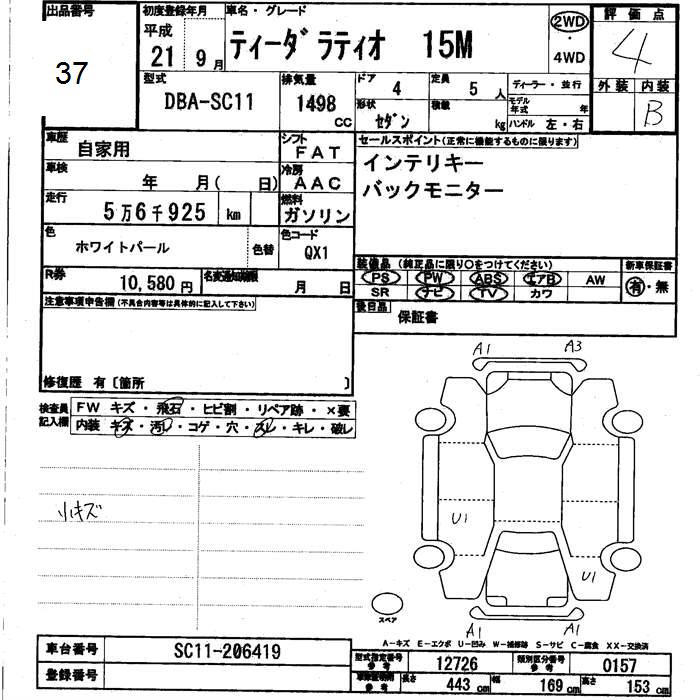 出品番号
37
初度登録年月
平成
21 9月
車名・グレード
ティーダ ラティオ 15M
2WD
・
4WD
評価点
4
外装 内装
B
型式
DBA-SC11
排気量
1498
CC
ドア 4
定員 5人
ディーラー・並行
形状 セダン
積載 kg
モデル年式 年
ハンドル 左・右
車歴
自家用
シフト
FAT
車検
年 月( 日)
冷房
AAC
走行
5万6千925 km
燃料
ガソリン
色
ホワイトパール
色替
色コード
QX1
R券
10,580円
名変通知期限
月 日
セールスポイント(正常に機能するものに限ります)
インテリキー
バックモニター
装備品 (純正品に限り○をつけてください)
PS PW ABS エアB AW
SR ナビ TV カワ
新車保証書
有・無
後日品
保証書
注意事項申告欄(不具合内容等は具体的に記入して下さい)
修復歴 有〔箇所 〕
検査員
記入欄
FW キズ・飛石・ヒビ割・リペア跡・×要
内装 キズ・汚レ・コゲ・穴・スレ・キレ・破レ
小キズ
A1
A3
U1
U1
A1
A1
スペア
A-キズ E-エクボ U-凹み W-補修跡 S-サビ C-腐食 XX-交換済
車台番号
SC11-206419
登録番号
型式指定番号
参考
12726
類別区分番号
参考
0157
参考
長さ 443cm
幅 169cm
高さ 153cm